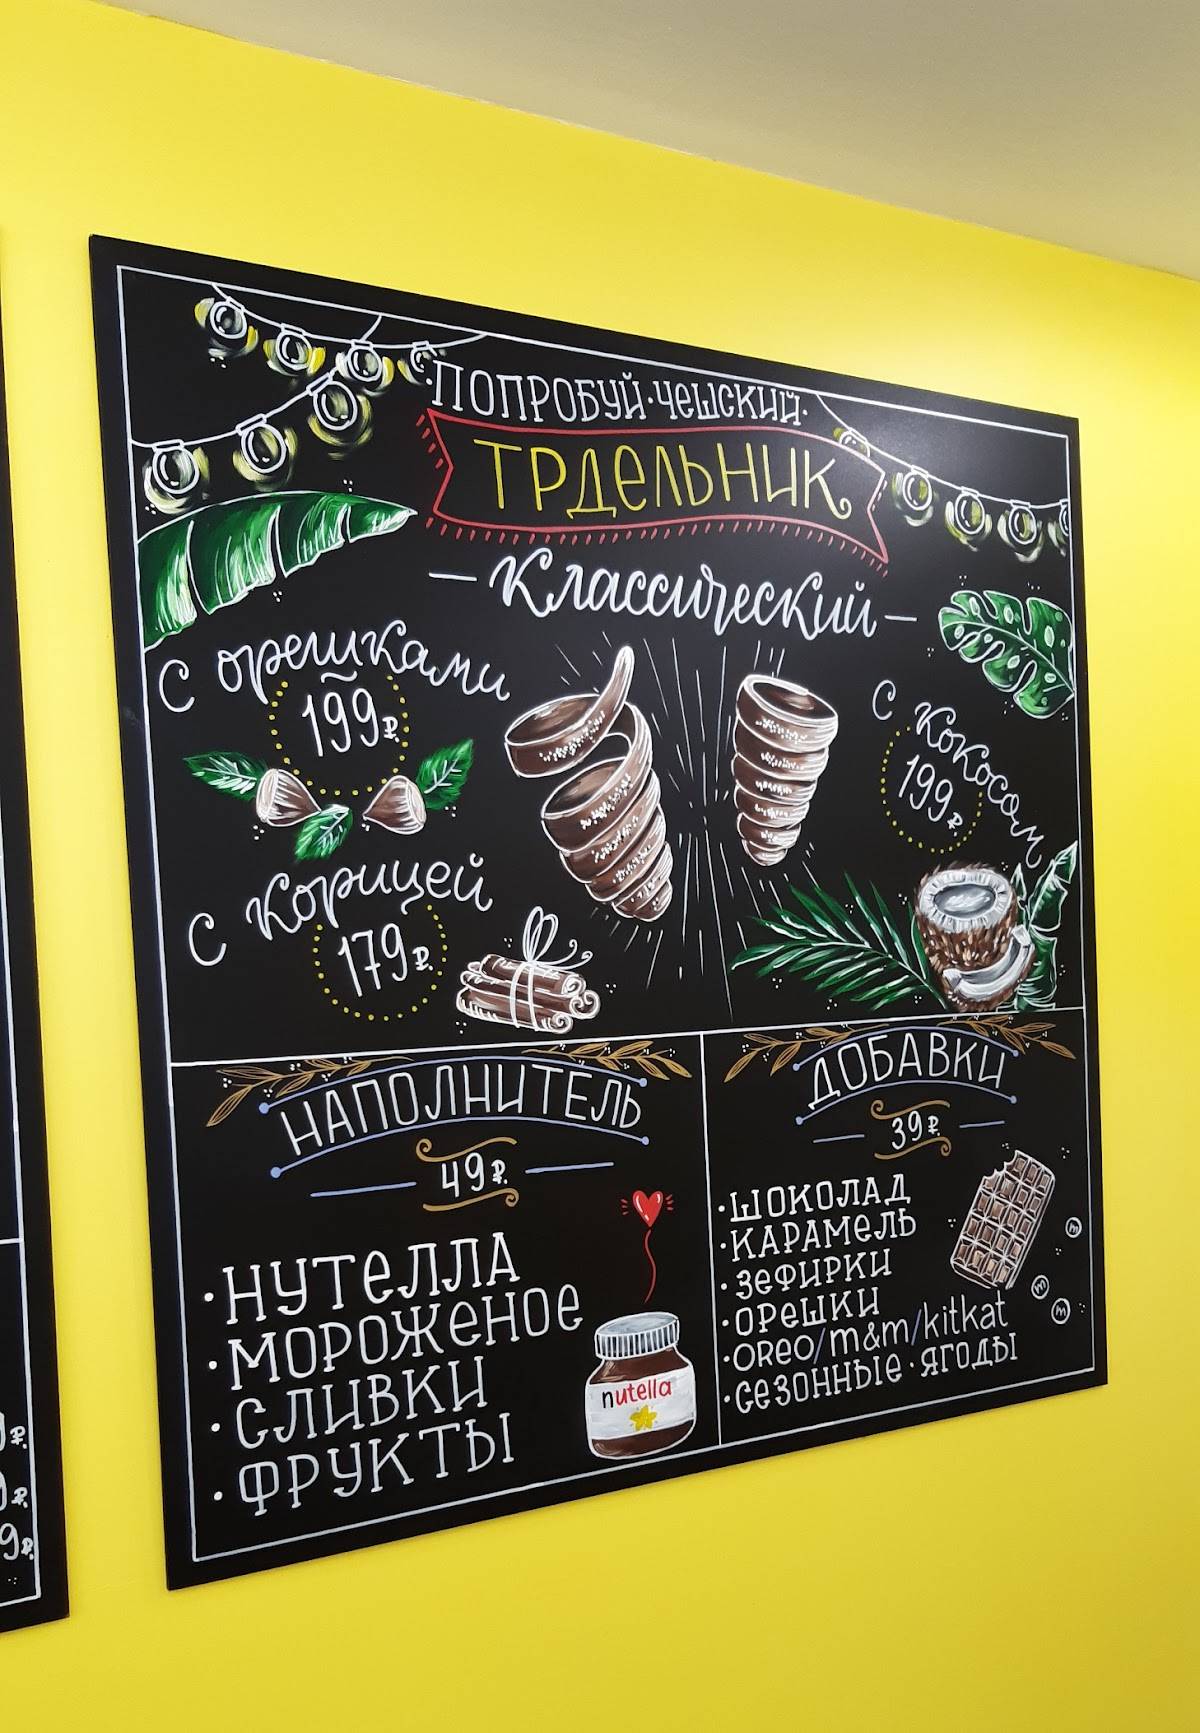 ПОПРОБУЙ·ЧЕШСКИЙ·
ТРДЕЛЬНИК
— Классический —
с орешками
199₽
с корицей
179₽
с кокосом
199₽
НАПОЛНИТЕЛЬ
49₽
·НУТЕЛЛА
·МОРОЖЕНОЕ
·СЛИВКИ
·ФРУКТЫ
nutella
ДОБАВКИ
39₽
·ШОКОЛАД
·КАРАМЕЛЬ
·ЗЕФИРКИ
·ОРЕШКИ
·OREO/m&m/kitkat
·СЕЗОННЫЕ·ЯГОДЫ
m
m
m
9₽